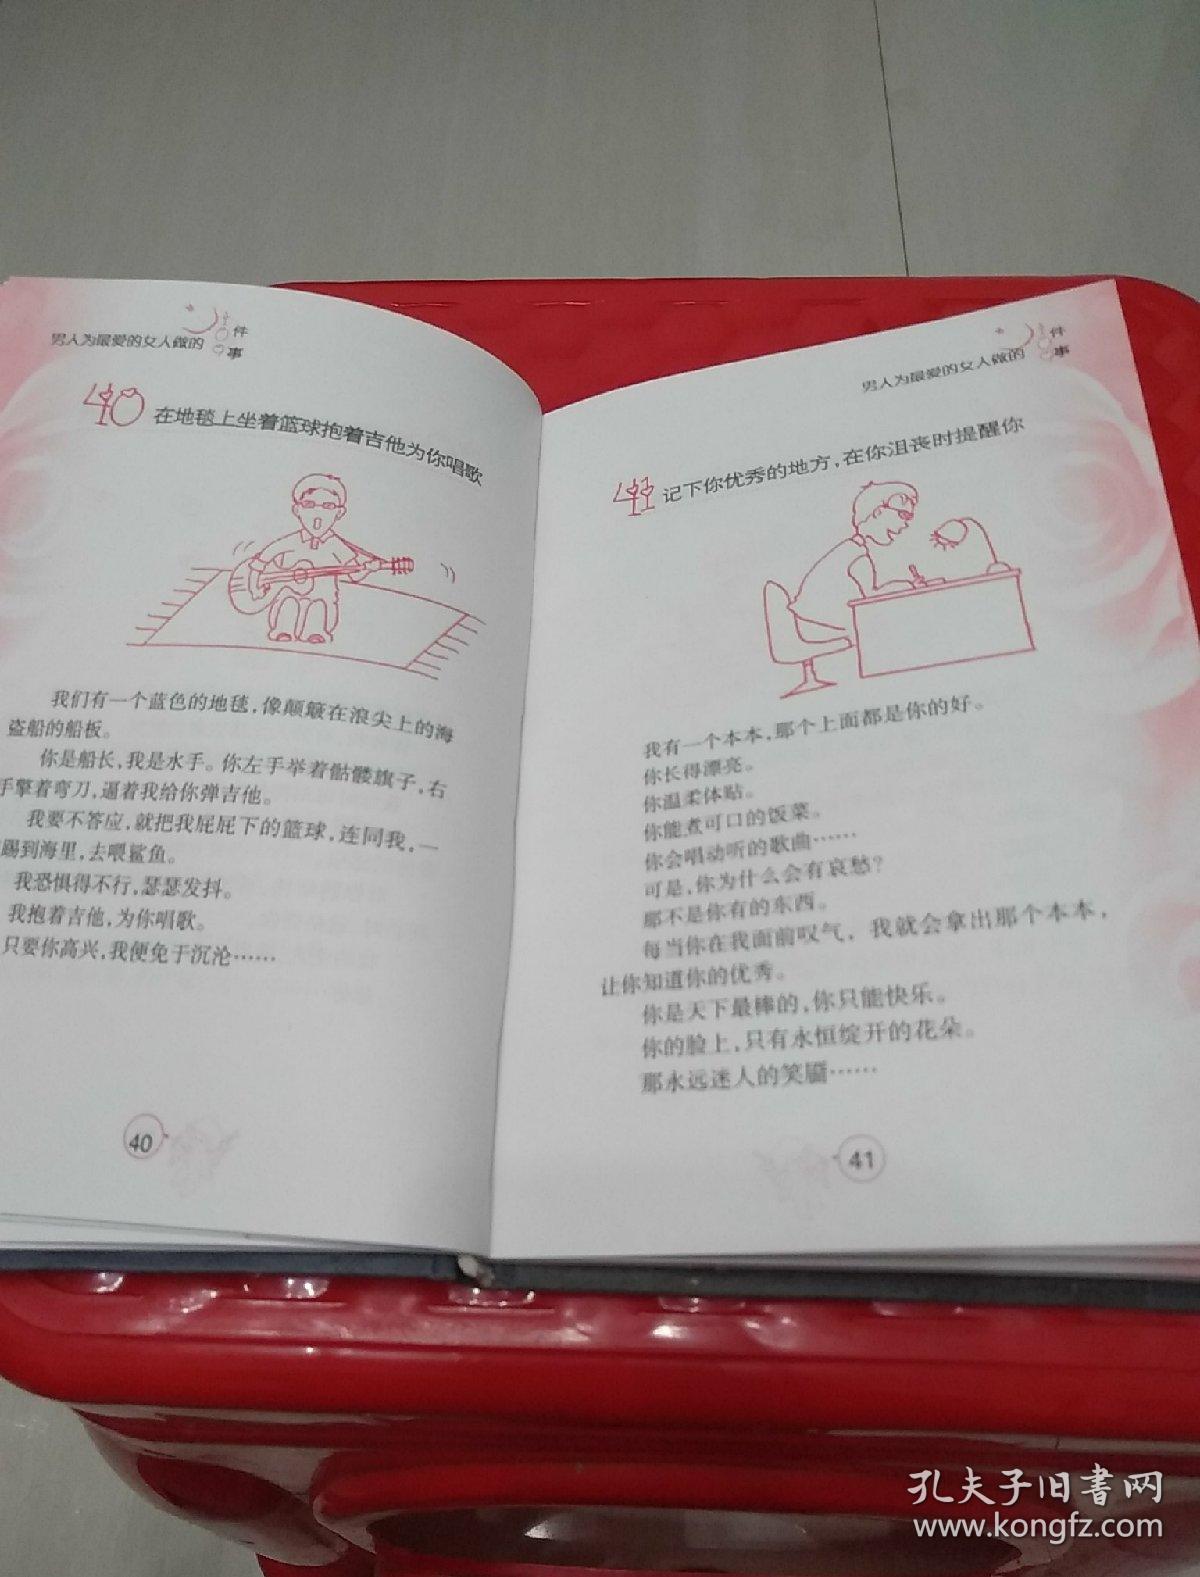 男人为最爱的女人做的100件事
40 在地毯上坐着篮球抱着吉他为你唱歌
我们有一个蓝色的地毯，像颠簸在浪尖上的海
盗船的船板。
你是船长，我是水手。你左手举着骷髅旗子，右
手擎着弯刀，逼着我给你弹吉他。
我要不答应，就把我屁屁下的篮球，连同我，一
踢到海里，去喂鲨鱼。
我恐惧得不行，瑟瑟发抖。
我抱着吉他，为你唱歌。
只要你高兴，我便免于沉沦……
40
男人为最爱的女人做的100件事
41 记下你优秀的地方，在你沮丧时提醒你
我有一个本本，那个上面都是你的好。
你长得漂亮。
你温柔体贴。
你能煮可口的饭菜。
你会唱动听的歌曲……
可是，你为什么会有哀愁？
那不是你有的东西。
每当你在我面前叹气，我就会拿出那个本本，
让你知道你的优秀。
你是天下最棒的，你只能快乐。
你的脸上，只有永恒绽开的花朵。
那永远迷人的笑靥……
41
孔夫子旧书网
www.kongfz.com